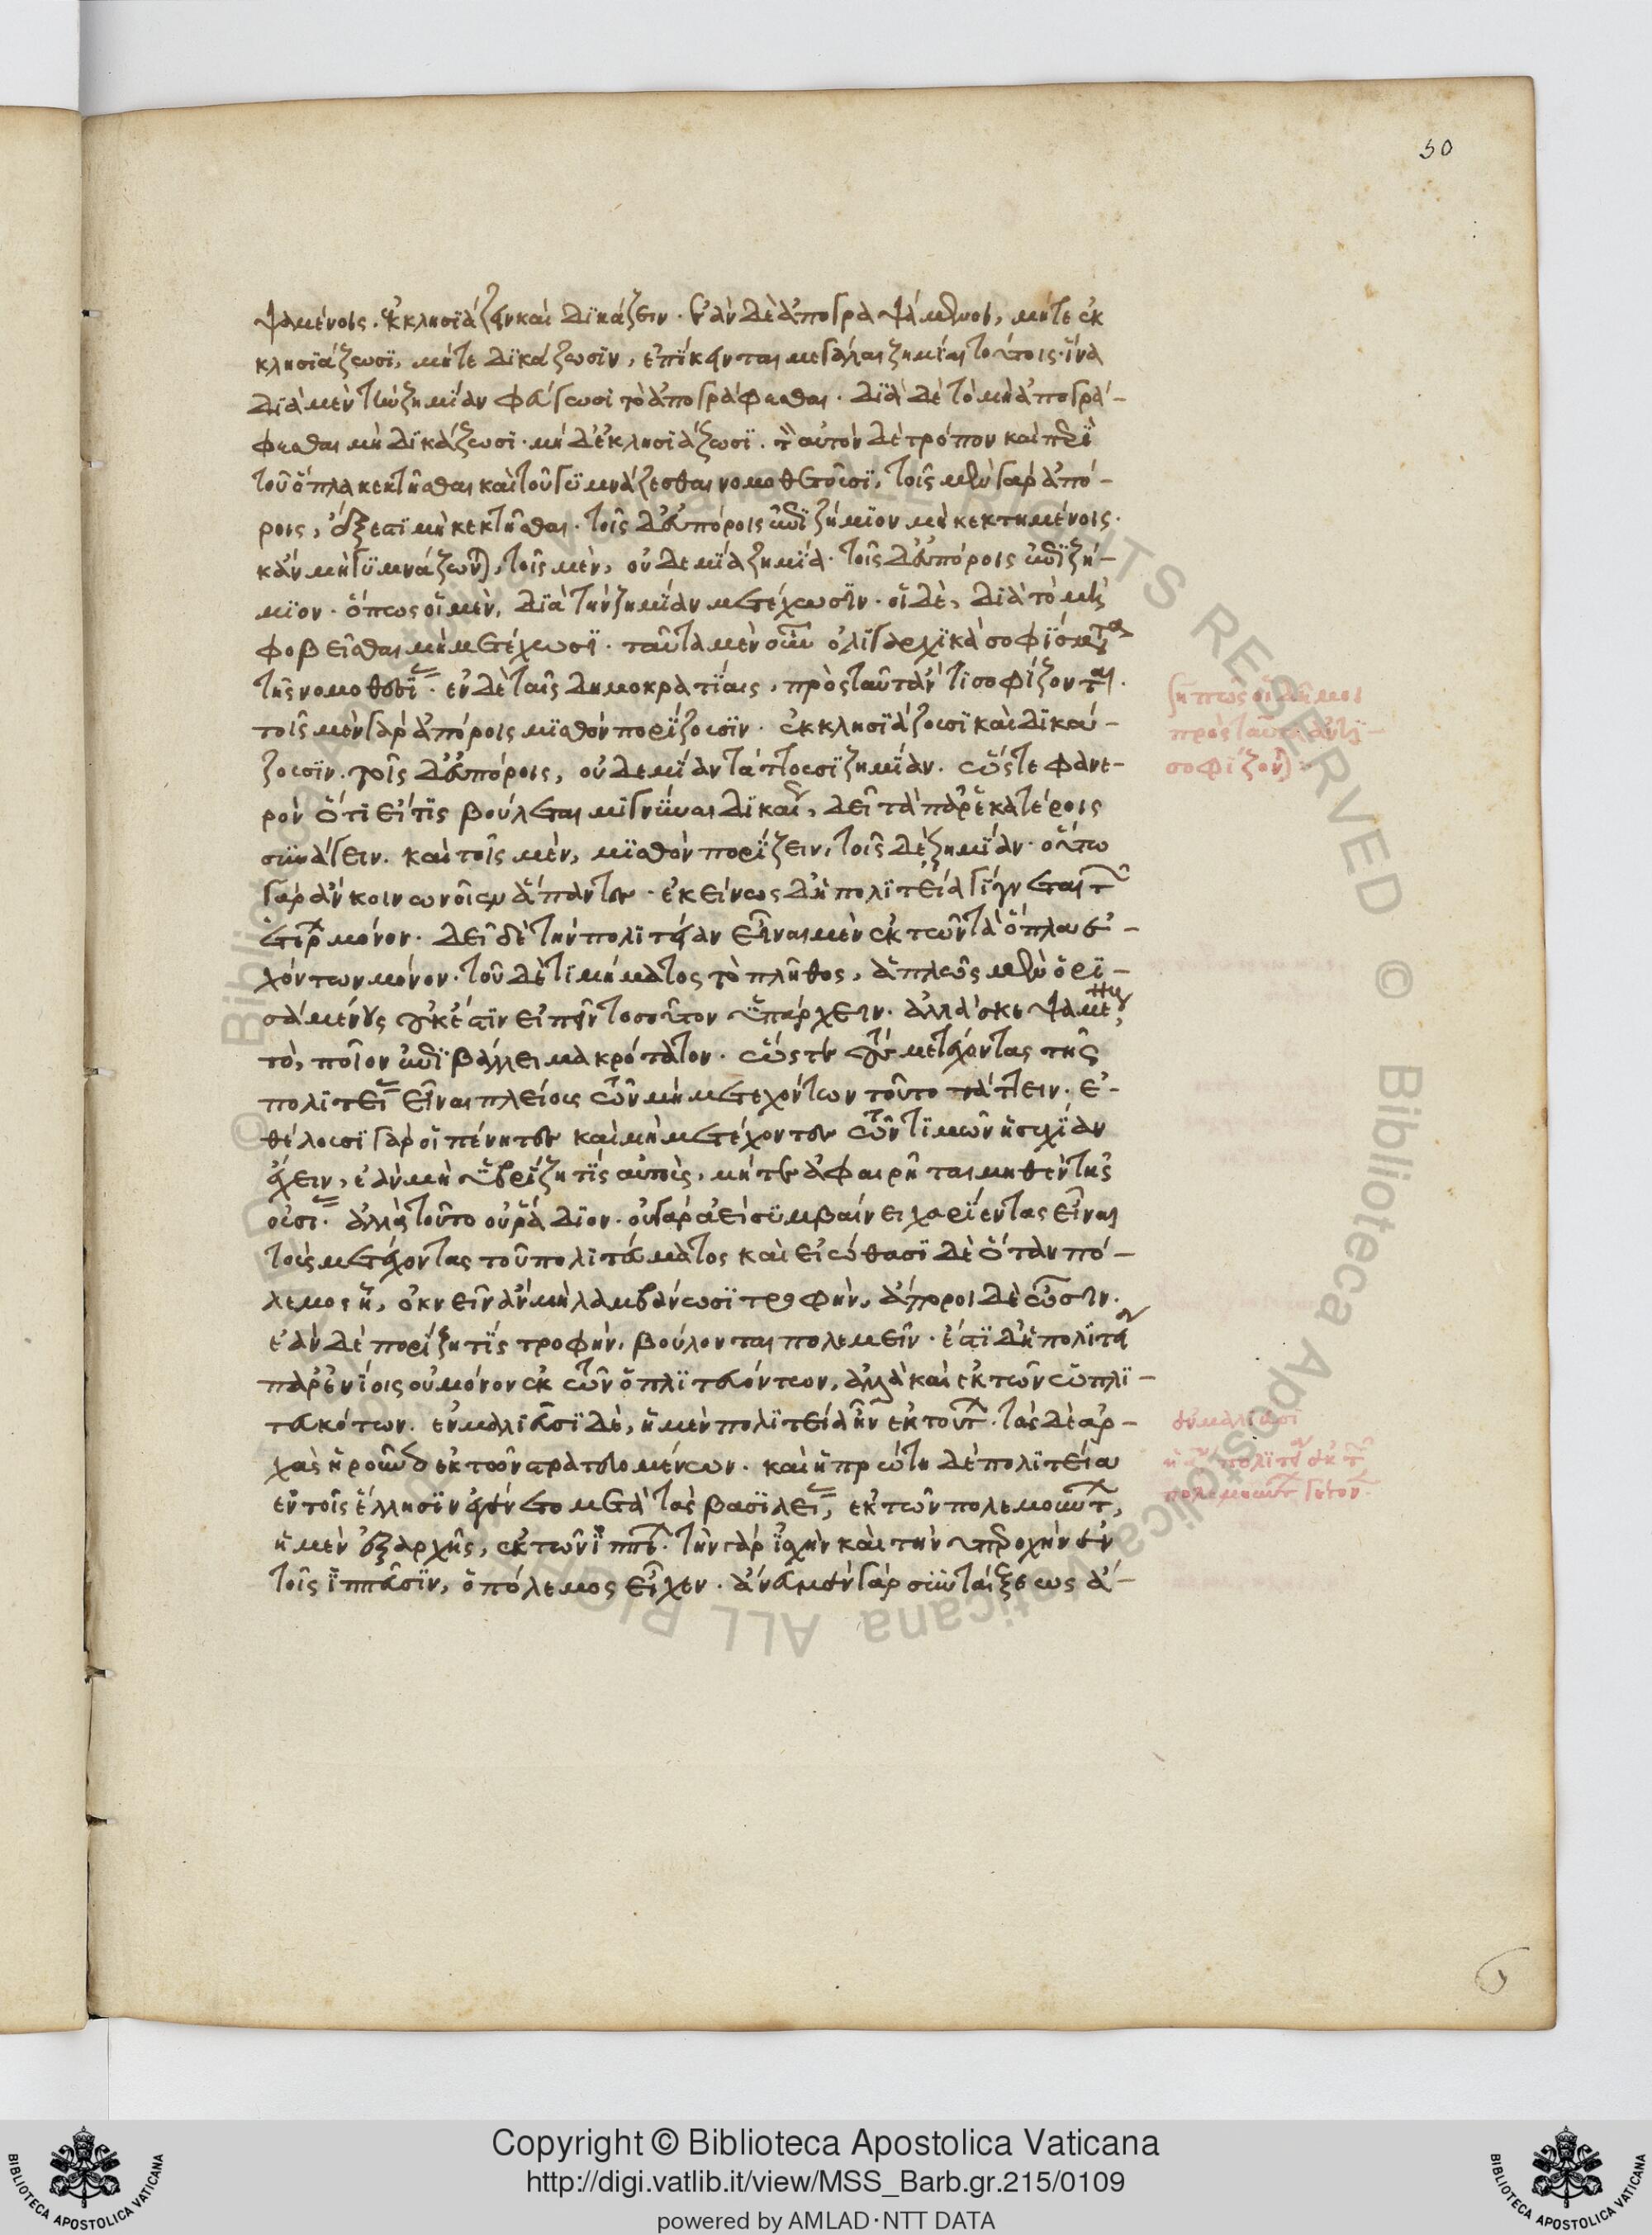 50
ψαμένοις. ἐκκλησιάζειν καὶ δικάζειν. ἐὰν δὲ ἀπογραψάμενοι, μήτε ἐκ
κλησιάζωσι, μήτε δικάζωσιν, ἐπίκεινται μεγάλαι ζημίαι τούτοις. ἵνα
διὰ μὲν τὴν ζημίαν φεύγωσι τὸ ἀπογράφεσθαι. διὰ δὲ τὸ μὴ ἀπογρά-
φεσθαι μὴ δικάζωσι. μὴ δ' ἐκκλησιάζωσι. τὸν αὐτὸν δὲ τρόπον καὶ περὶ
τοῦ ὅπλα κεκτῆσθαι καὶ τοῦ γυμνάζεσθαι νομοθετοῦσι, τοῖς μὲν γὰρ ἀπό-
ροις, ἔξεστι μὴ κεκτῆσθαι. τοῖς δ' εὐπόροις ἐπιζήμιον μὴ κεκτημένοις.
κἂν μὴ γυμνάζωνται, τοῖς μὲν, οὐδεμία ζημία. τοῖς δ' εὐπόροις ἐπιζή-
μιον. ὅπως οἱ μὲν, διὰ τὴν ζημίαν μετέχωσιν. οἱ δὲ, διὰ τὸ μὴ
φοβεῖσθαι μὴ μετέχωσι. ταῦτα μὲν οὖν ὀλιγαρχικὰ σοφίσματα
τῆς νομοθεσίας. ἐν δὲ ταῖς δημοκρατίαις, πρὸς ταῦτ' ἀντισοφίζονται.
τοῖς μὲν γὰρ ἀπόροις μισθὸν πορίζουσιν. ἐκκλησιάζουσι καὶ δικά-
ζουσιν. τοῖς δ' εὐπόροις, οὐδεμίαν τάττουσι ζημίαν. ὥστε φανε-
ρὸν ὅτι εἴ τις βούλεται μιγνύναι δικαίως, δεῖ τὰ παρ' ἑκατέροις
συνάγειν. καὶ τοῖς μὲν, μισθὸν πορίζειν, τοῖς δὲ ζημίαν. οὕτω
γὰρ ἂν κοινωνοῖεν ἅπαντες. ἐκείνως δ' ἡ πολιτεία γίγνεται τῶν
ἑτέρων μόνον. δεῖ δὲ τὴν πολιτείαν εἶναι μὲν ἐκ τῶν τὰ ὅπλα ἐ-
χόντων μόνον. τοῦ δὲ τιμήματος τὸ πλῆθος, ἁπλῶς μὲν ὁρι-
σαμένους οὐκ ἔστιν εἰπεῖν τοσοῦτον ὑπάρχειν. ἀλλὰ σκεψαμένους
τὸ, ποῖον ἐπιβάλλει μακρότατον. ὥστε τοὺς μετέχοντας τῆς
πολιτείας εἶναι πλείους τῶν μὴ μετεχόντων τοῦτο τάττειν. ἐ-
θέλουσι γὰρ οἱ πένητες καὶ μὴ μετέχοντες τῶν τιμῶν ἡσυχίαν
ἔχειν, ἐὰν μὴ ὑβρίζῃ τίς αὐτοὺς, μήτε ἀφαιρῆται μηθὲν τῆς
οὐσίας. ἀλλὰ τοῦτο οὐ ῥάδιον. οὐ γὰρ ἀεὶ συμβαίνει χαρίεντας εἶναι
τοὺς μετέχοντας τοῦ πολιτεύματος καὶ εἰώθασι δὲ ὅταν πό-
λεμος ᾖ, ὀκνεῖν ἂν μὴ λαμβάνωσι τροφὴν, ἄποροι δὲ ὦσιν.
ἐὰν δὲ πορίζῃ τίς τροφὴν, βούλονται πολεμεῖν. ἔστι δ' ἡ πολιτεία
παρ' ἐνίοις οὐ μόνον ἐκ τῶν ὁπλιτευόντων, ἀλλὰ καὶ ἐκ τῶν ὡπλι-
τευκότων. ἐν μαλιεῦσι δὲ, ἡ μὲν πολιτεία ἦν ἐκ τούτων. τὰς δὲ ἀρ-
χὰς ᾑροῦντο ἐκ τῶν στρατευομένων. καὶ ἡ πρώτη δὲ πολιτεία
ἐν τοῖς ἕλλησιν ἐγένετο μετὰ τὰς βασιλείας, ἐκ τῶν πολεμούντων,
ἡ μὲν ἐξαρχῆς, ἐκ τῶν ἱππέων. τὴν γὰρ ἰσχὺν καὶ τὴν ὑπεροχὴν ἐν
τοῖς ἱππεῦσιν, ὁ πόλεμος εἶχεν. ἄνευ μὲν γὰρ συντάξεως ἄ-
πῶς οἱ δῆμοι
πρὸς ταῦτα ἀντι-
σοφίζονται
ἐν μαλιεῦσι
πολιτεία ἐκ τῶν
πολεμούντων
Copyright © Biblioteca Apostolica Vaticana
http://digi.vatlib.it/view/MSS_Barb.gr.215/0109
powered by AMLAD·NTT DATA
BIBLIOTECA APOSTOLICA VATICANA
BIBLIOTECA APOSTOLICA VATICANA